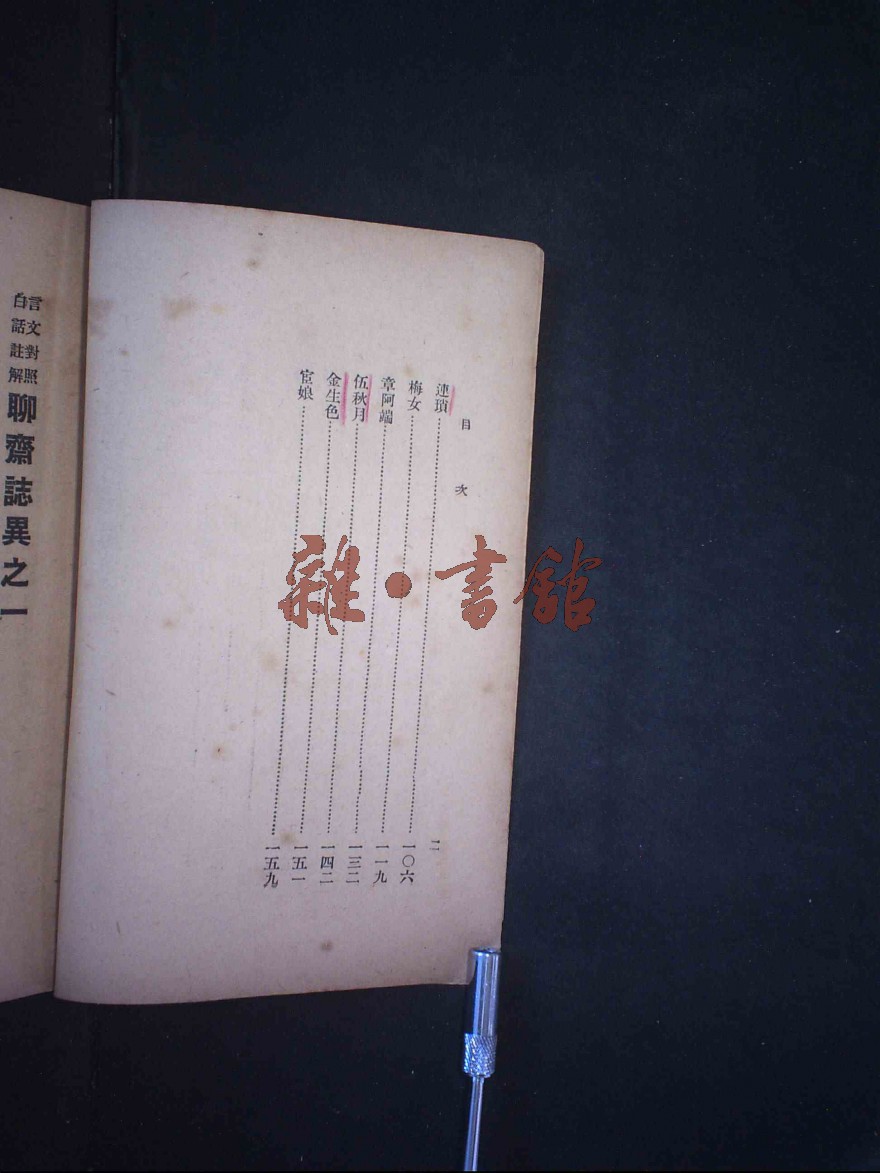 目次 二
連瑣………一〇六
梅女………一一九
章阿端………一三二
伍秋月………一四二
金生色………一五一
宦娘………一五九
言文對照
白話註解
聊齋誌異之一
雜·書館